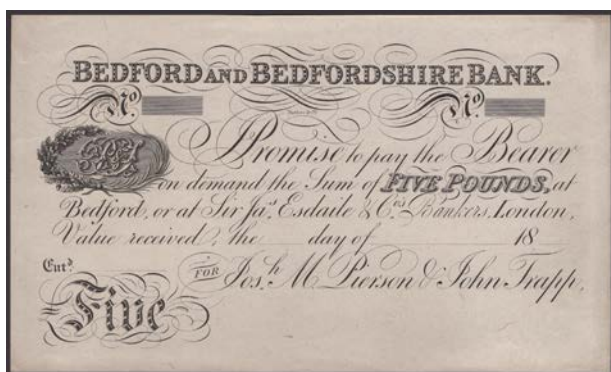 BEDFORD AND BEDFORDSHIRE BANK.
No. No.
I Promise to pay the Bearer
on demand the Sum of FIVE POUNDS, at
Bedford, or at Sir Jas. Esdaile & Cos. Bankers, London,
Value received, the day of 18
Entd. FOR Josh. M Pierson & John Trapp,
Five